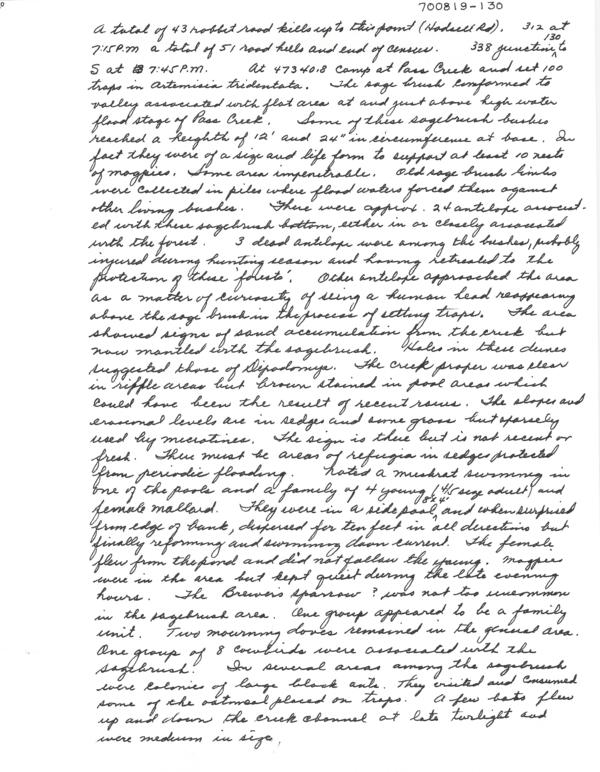 700819-130
A total of 43 rabbit road kills up to this point (Hadsell Rd). 312 at
130
7:15 P.m a total of 51 road kills and end of census. 338 junction to
S at 7:45 P.M. At 47340.8 camp at Pass Creek and set 100
traps in Artemisia tridentata. The sage brush conformed to
valley associated with flat area at and just above high water
flood stage of Pass Creek. Some of these sagebrush bushes
reached a heighth of 12' and 24" in circumference at base. In
fact they were of a size and life form to support at least 10 nests
of magpies. Some area impenetrable. Old sage brush limbs
were collected in piles where flood waters forced them against
other living bushes. There were approx. 24 antelope associat-
ed with these sagebrush bottom, either in or closely associated
with the forest. 3 dead antelope were among the bushes, probably
injured during hunting season and having retreated to the
protection of these 'forests'. Other antelope approached the area
as a matter of curiosity of seing a human head reappearing
above the sage brush in the process of setting traps. The area
showed signs of sand accumulation from the creek but
now mantled with the sagebrush. Holes in these dunes
suggested those of Dipodomys. The creek proper was clear
in riffle areas but brown stained in pool areas which
could have been the result of recent rains. The slopes and
erosional levels are in sedges and some grass but sparsely
used by microtines. The sign is there but is not recent or
fresh. There must be areas of refugia in sedges protected
from periodic flooding. Noted a muskrat swimming in
one of the pools and a family of 4 young (4/5 size adult) and
female mallard. They were in a side pool, 8'x4' and when surprised
from edge of bank, dispersed for ten feet in all directions but
finally reforming and swimming down current. The female
flew from the pond and did not follow the young. Magpies
were in the area but kept quiet during the late evening
hours. The Brewers sparrow ? was not too uncommon
in the sagebrush area. One group appeared to be a family
unit. Two mourning doves remained in the general area.
One group of 8 cowbirds were associated with the
sagebrush. In several areas among the sagebrush
were colonies of large black ants. They visited and consumed
some of the oatmeal placed on traps. A few bats flew
up and down the creek channel at late twilight and
were medium in size.